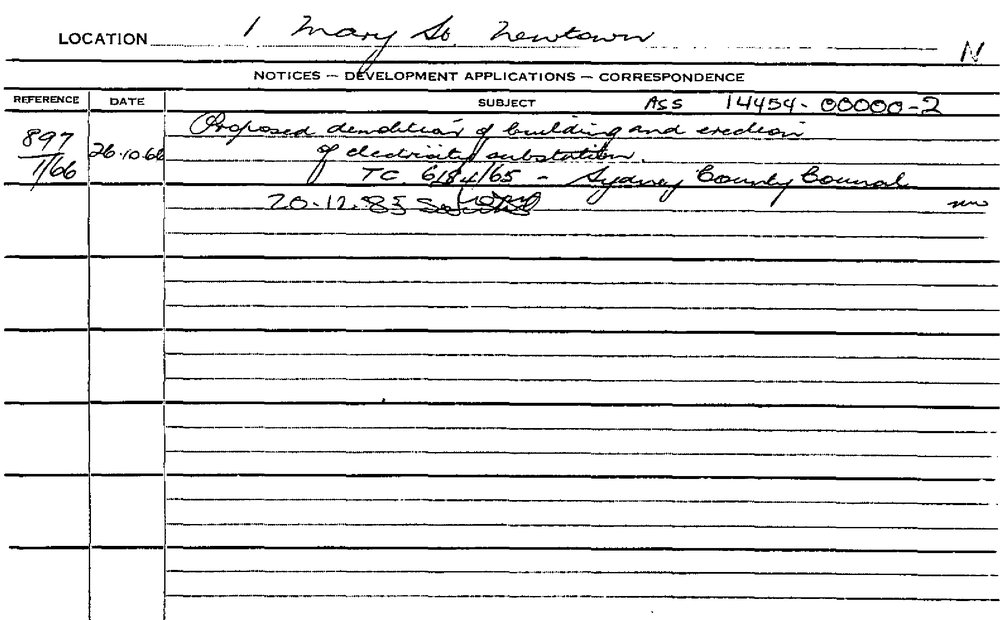 LOCATION 1 Mary St. Newtown
N
NOTICES — DEVELOPMENT APPLICATIONS — CORRESPONDENCE
REFERENCE DATE SUBJECT ASS 14454-00000-2
897 Proposed demolition of building and erection
1/66 26.10.66 of electricity substation.
TC. 6184/65 - Sydney County Council
20.12.85